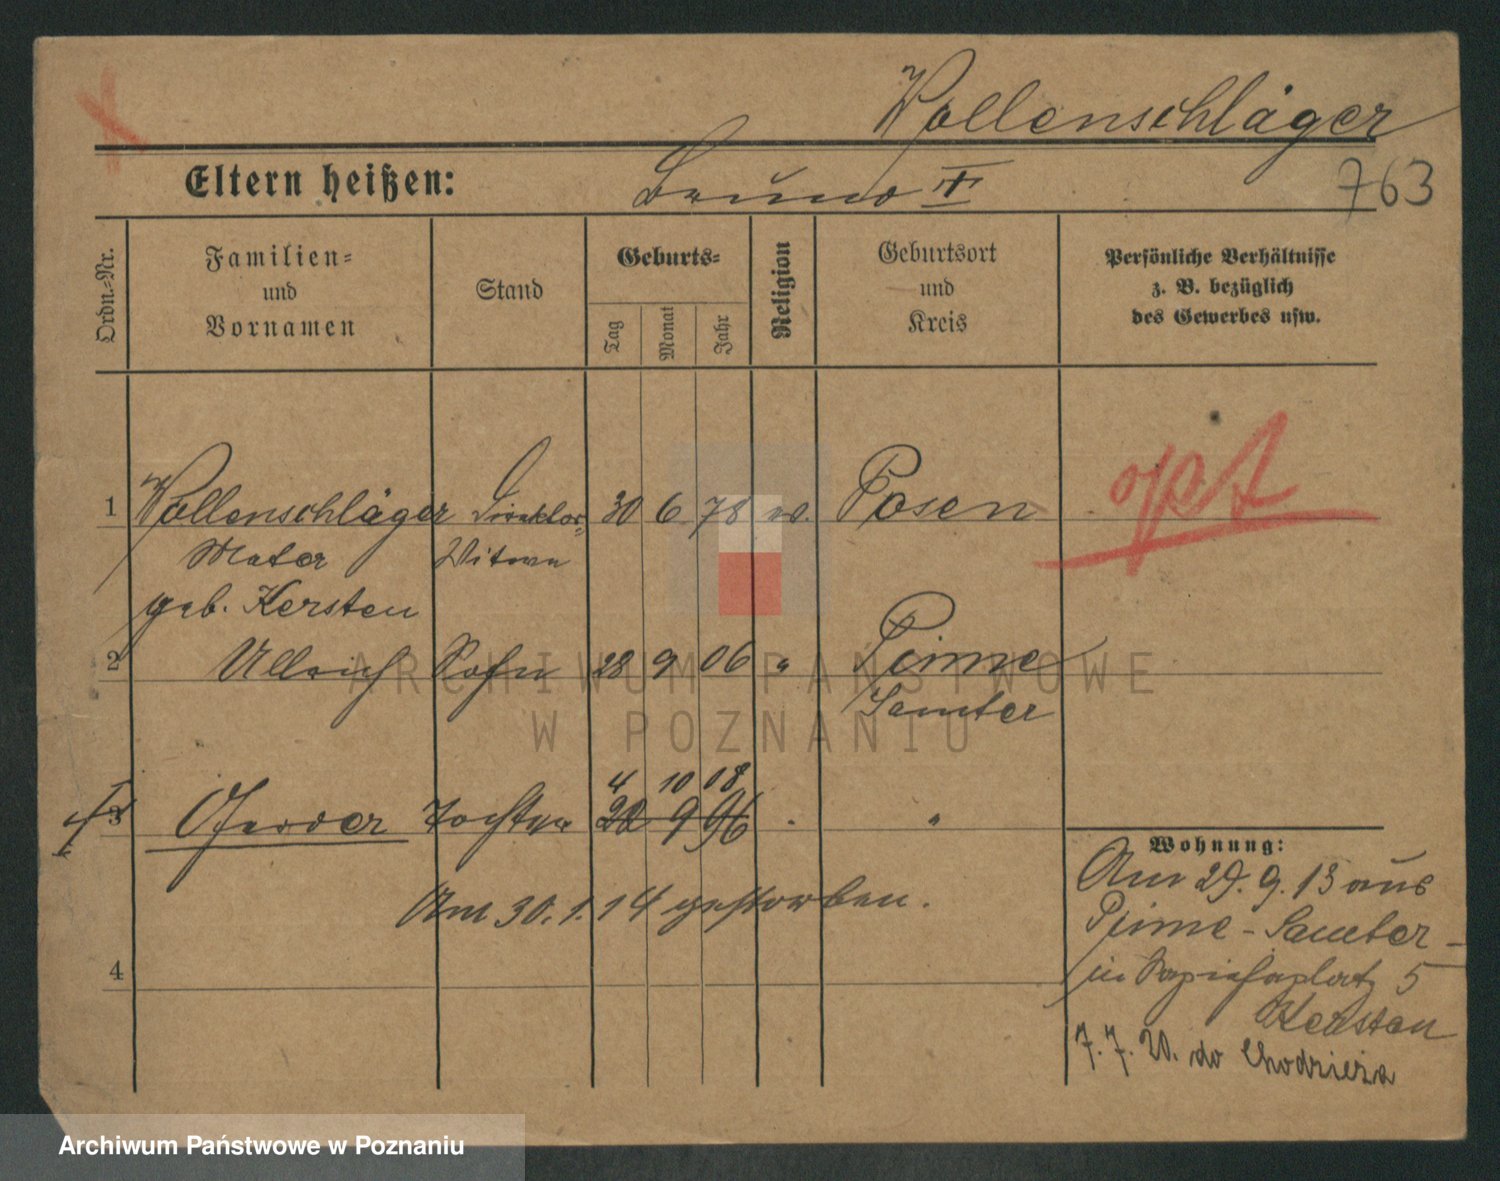 Wollenschläger
Eltern heißen:
Bruno
763
Ordn.-Nr.
Familien-
und
Vornamen
Stand
Geburts-
Tag
Monat
Jahr
Religion
Geburtsort
und
Kreis
Persönliche Verhältnisse
z. B. bezüglich
des Gewerbes usw.
1 Wollenschläger Direktor- 30 6 78 Posen
Witwe
geb. Kersten
opt
2 Ullrich Sohn 28 9 06 " Pinne
Samter
4 10 08
3 Tochter 9 96 "
Am 30.1.14 gestorben.
4
Wohnung:
Am 29.9.13 aus
Pinne - Samter -
in Sapiehaplatz 5
Kersten
7.7.20. do Chodzieża
ARCHIWUM PAŃSTWOWE
W POZNANIU
Archiwum Państwowe w Poznaniu